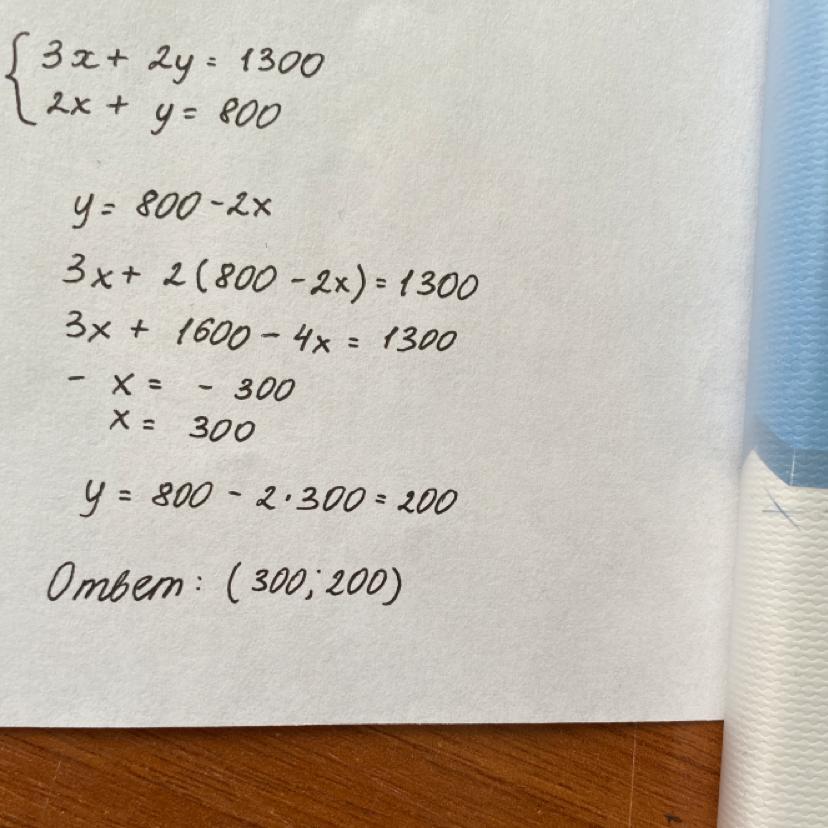 { 3x + 2y = 1300
2x + y = 800
y = 800 - 2x
3x + 2(800 - 2x) = 1300
3x + 1600 - 4x = 1300
- x = - 300
x = 300
y = 800 - 2·300 = 200
Ответ: (300; 200)